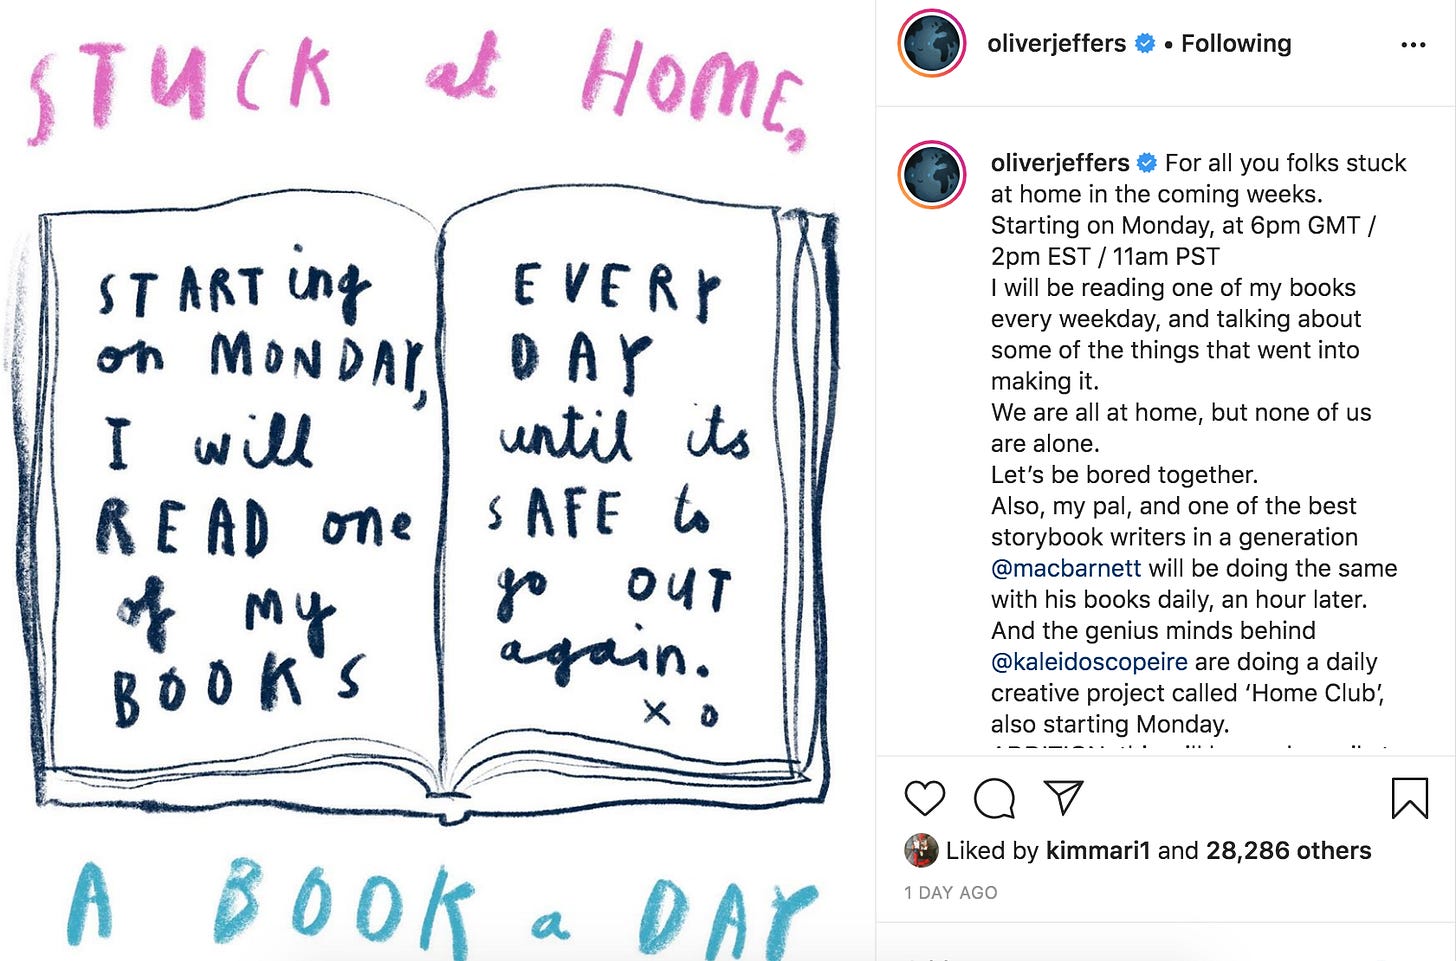 STUCK at HOME,
STARTing
on MONDAY,
I will
READ one
of my
BOOKS
EVERY
DAY
until its
SAFE to
go OUT
again.
x o
A BOOK a DAY
oliverjeffers • Following
oliverjeffers For all you folks stuck
at home in the coming weeks.
Starting on Monday, at 6pm GMT /
2pm EST / 11am PST
I will be reading one of my books
every weekday, and talking about
some of the things that went into
making it.
We are all at home, but none of us
are alone.
Let’s be bored together.
Also, my pal, and one of the best
storybook writers in a generation
@macbarnett will be doing the same
with his books daily, an hour later.
And the genius minds behind
@kaleidoscopeire are doing a daily
creative project called ‘Home Club’,
also starting Monday.
Liked by kimmari1 and 28,286 others
1 DAY AGO